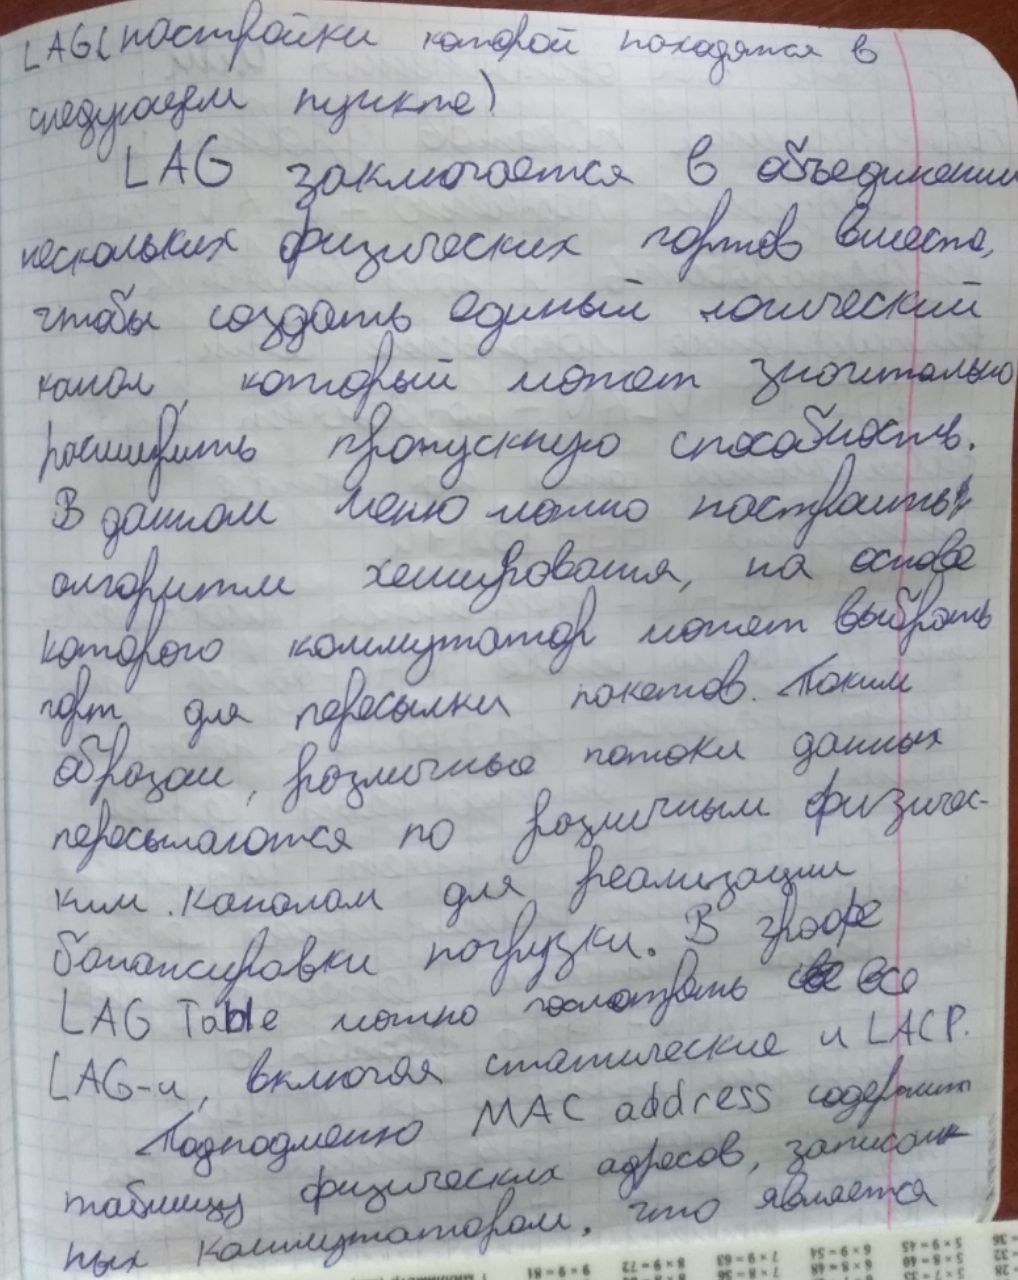 LAG (настройки которой находятся в
следующем пункте)
LAG заключается в объединении
нескольких физических портов вместе,
чтобы создать единый логический
канал, который может значительно
расширить пропускную способность.
В данном меню можно настроить
алгоритм хеширования, на основе
которого коммутатор может выбрать
порт для пересылки пакетов. Таким
образом, различные потоки данных
пересылаются по различным физичес-
ким каналам для реализации
балансировки погрузки. В графе
LAG Table можно посмотреть все
LAG-и, включая статические и LACP.
Подподменю MAC address содержит
таблицу физических адресов, записан-
ных коммутатором, что является
9×9=81 8×9=72 7×9=63 6×9=54 5×9=45
7×8=56 6×8=48 5×8=40